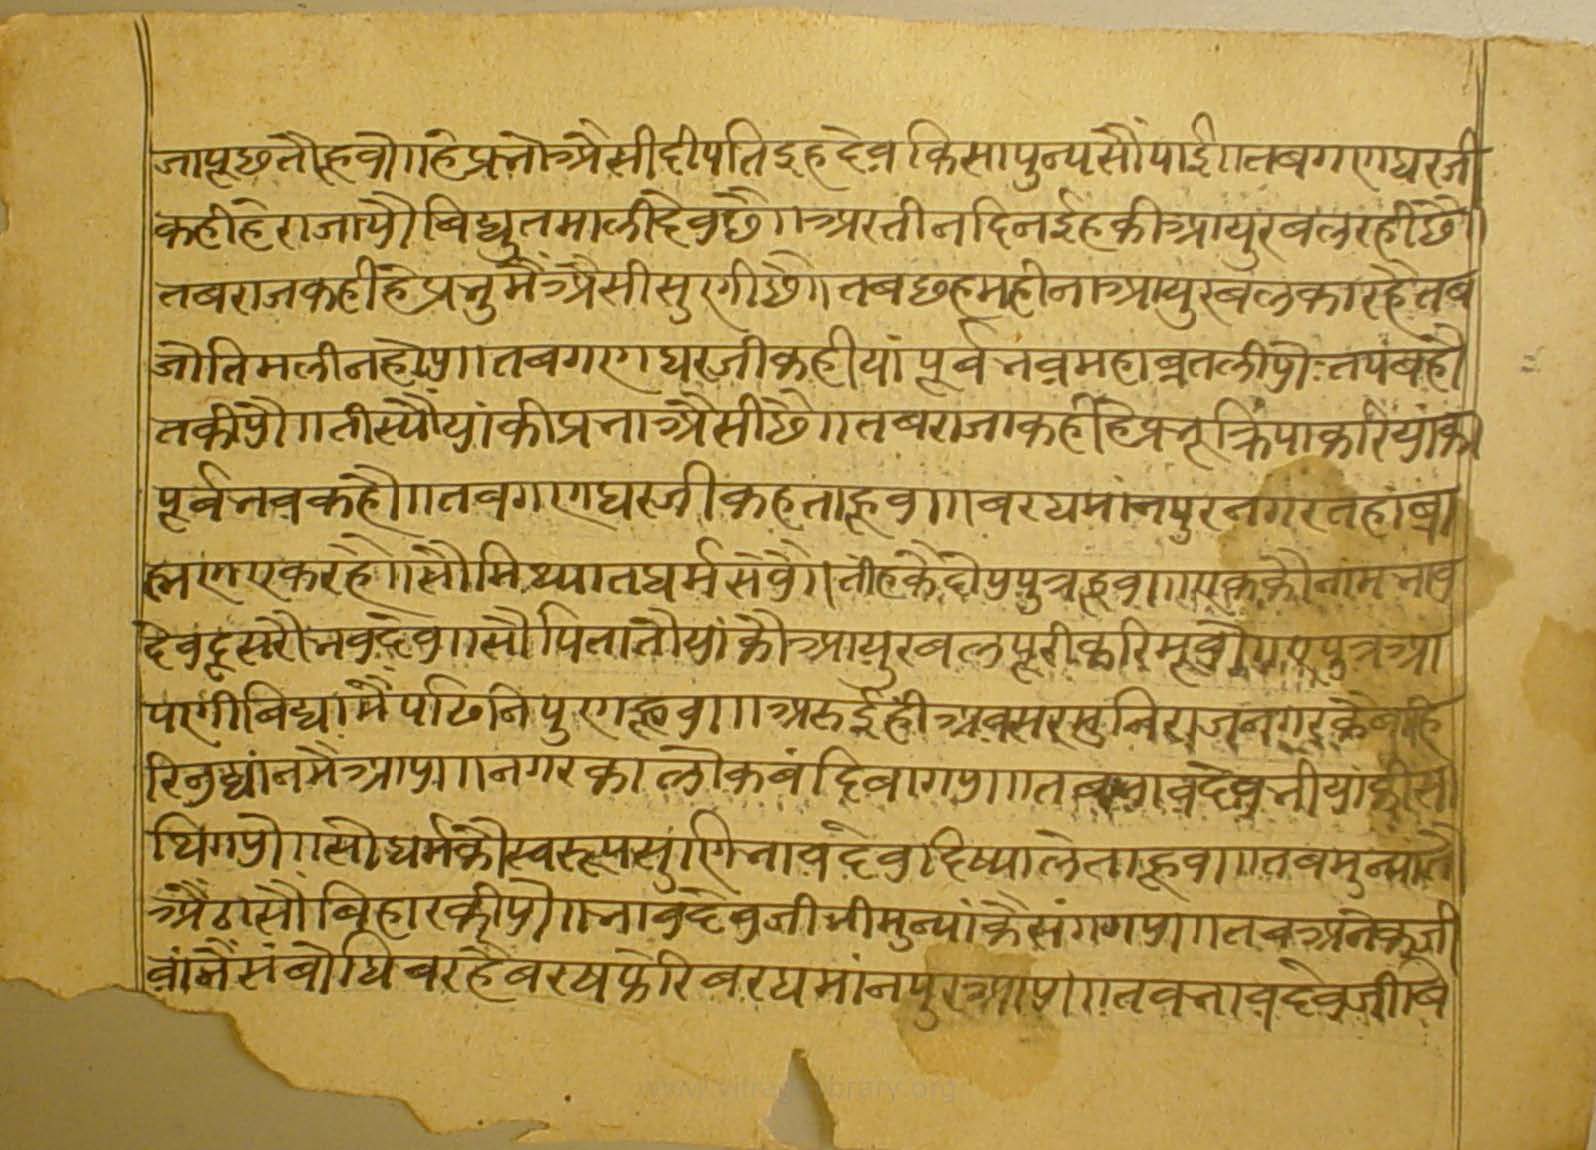 जापूछतौहूवो।।हेप्रभोअैसीदीपतिइहदेवकिसापुन्यसौंपाई।।तबगणधरजी
कहीहेराजायौबिद्युतमालीदेवछै।।अरतीनदिनईहकीआयुरबलरहीछै।।
तबराजकहीहेप्रभुमैंअैसीसुणीछै।।तबछहमहीनाआयुरबलकारहैतब
जोतिमलीनहोय।।तबगणधरजीकहीयांपूर्वभवमहाब्रतलीया।।तपबहौ
तकीयौ।।तीस्यौंयांकीप्रभाअैसीछै।।तबराजाकहीहेप्रभूक्रिपाकरियांका
पूर्वभवकहौ।।तबगणधरजीकहताहूवा।।बरधमांनपुरनगरतहांब्रा
ह्मणएकरहै।।सौमिथ्यातधर्मसेवै।।तीहकैदोयपुत्रहूवा।।एककौनामभाव
देवदूसरोभवदेव।।सौपितातौयांकौआयुरबलपूरीकरिमूवो।।एपुत्रआ
पणीबिद्यामैंपढिनिपुणहूवा।।अरुईहीअवसरमुनिराजनगरकेबाहि
रिनुद्यांनमैआया।।नगरकालोकबंदिवागया।।तबभावदेवभीयांहीसा
थिगयो।।सोधर्मकौस्वरूपसुणिभावदेवदिष्यालेताहूवा।।तबमुन्यांतौ
अैठासौंबिहारकीयौ।।भावदेवजीभीमुन्यांकैसंगगया।।तबअनेकजी
वांनैंसंबोधिबरहैबरषफेरिबरधमांनपुरआया।।तबभावदेवजीबि
www.vitragvani library.org